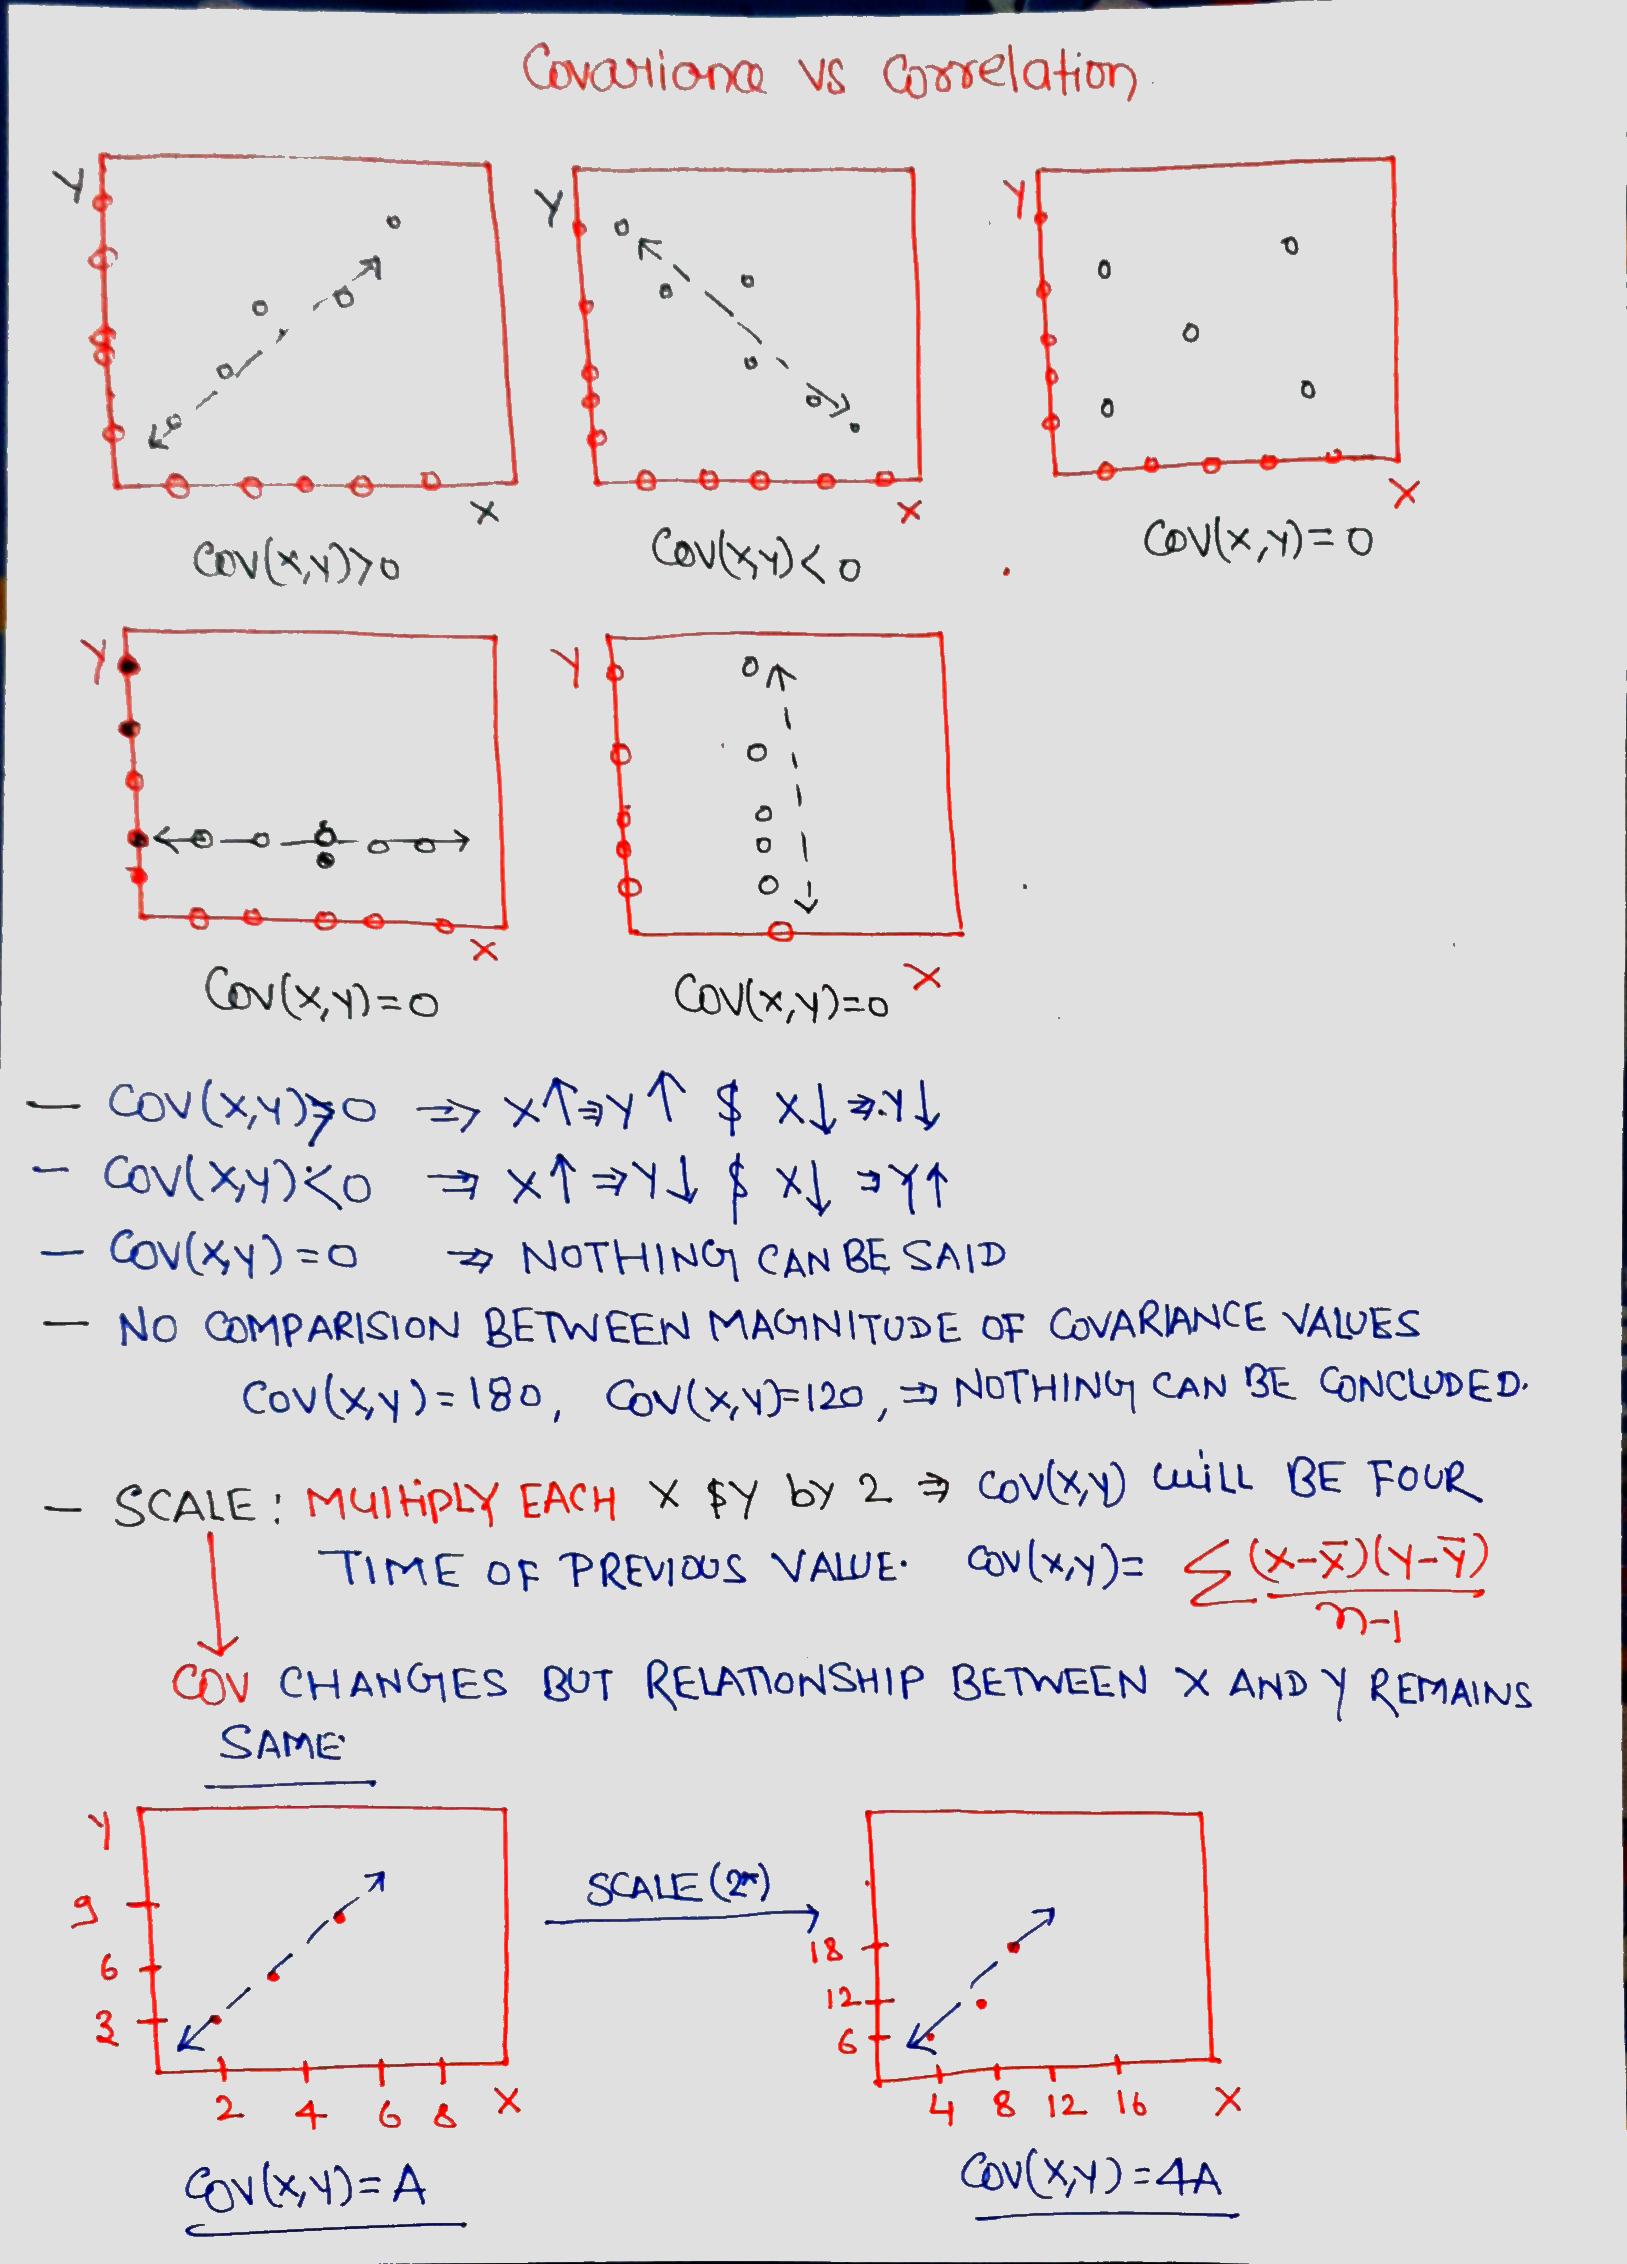 Covariance vs Correlation
Y
Y
Y
X
X
X
COV(X,Y)>0
COV(X,Y)<0
COV(X,Y)=0
Y
Y
X
X
COV(X,Y)=0
COV(X,Y)=0
— COV(X,Y)>0 ⇒ X↑⇒Y↑ $ X↓⇒Y↓
— COV(X,Y)<0 ⇒ X↑⇒Y↓ $ X↓⇒Y↑
— COV(X,Y)=0 ⇒ NOTHING CAN BE SAID
— NO COMPARISION BETWEEN MAGNITUDE OF COVARIANCE VALUES
COV(X,Y)=180, COV(X,Y)=120, ⇒ NOTHING CAN BE CONCLUDED.
— SCALE: MULTIPLY EACH X $Y by 2 ⇒ COV(X,Y) WILL BE FOUR
TIME OF PREVIOUS VALUE. COV(X,Y)= Σ (X-X̄)(Y-Ȳ)
n-1
COV CHANGES BUT RELATIONSHIP BETWEEN X AND Y REMAINS
SAME
Y
9
6
3
2 4 6 8 X
SCALE (2*)
18
12
6
4 8 12 16 X
COV(X,Y)=A
COV(X,Y)=4A